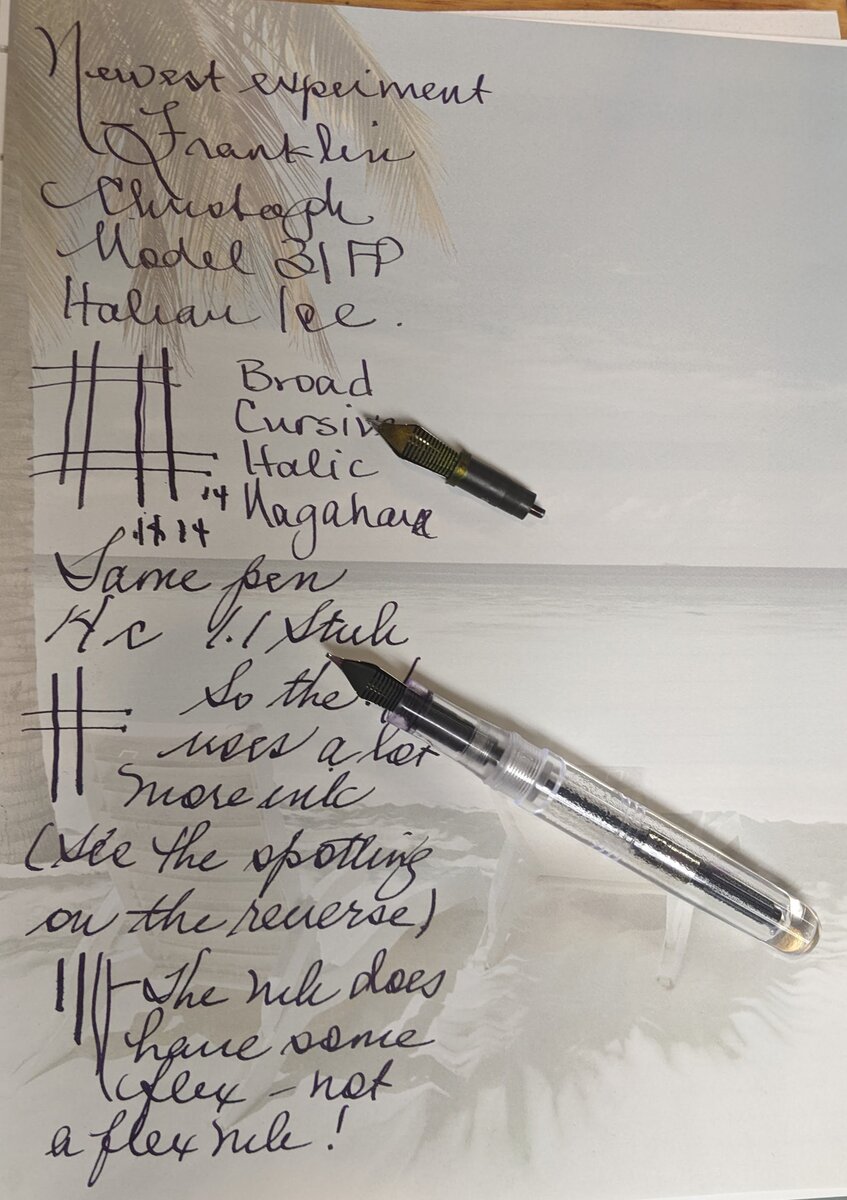 Newest expeiment
Franklin
Christoph
Model 31 FP
Italian Ice.
Broad
Cursiv
Italic
Nagahara
14
14 14
Same pen
1.1 Stub
So the
uses a lot
more ink
(see the spotting
on the reverse)
The nib does
have some
flex - not
a flex nib!